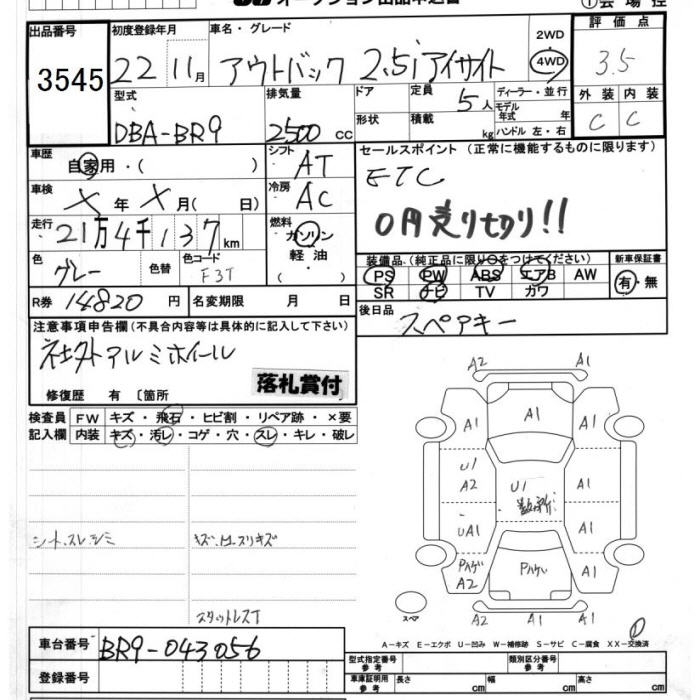 出品番号 初度登録年月 車名・グレード 2WD 評価点
3545 22 11月 アウトバック 2.5i アイサイト 4WD 3.5
型式 排気量 ドア 定員 5人 ディーラー・並行 外装 内装
DBA-BR9 2500cc 形状 積載 kg モデル年式 年 ハンドル 左・右 C C
車歴 自家用・( ) シフト AT セールスポイント (正常に機能するものに限ります)
車検 X年X月( 日) 冷房 AC ETC
走行 21万4千137km 燃料 ガソリン 軽油・ 0円売り切り!!
色 グレー 色替 色コード F3T ( ) 装備品(純正品に限り○をつけてください) 新車保証書
PS PW ABS エアB AW 有・無
SR ナビ TV カワ
R券 14820円 名変期限 月 日 後日品
スペアキー
注意事項申告欄(不具合内容等は具体的に記入して下さい)
社外アルミホイール
落札賞付
修復歴 有 〔箇所
検査員 FW キズ・飛石・ヒビ割・リペア跡・×要
記入欄 内装 キズ・汚レ・コゲ・穴・スレ・キレ・破レ
A2 A1
A1 A1 A1
U1 A2 U1 A1
UA1 A1
A2 A1
A2 A1 A1
スペア
A-キズ E-エクボ U-凹み W-補修跡 S-サビ C-腐食 XX-交換済
車台番号 BR9-043056
登録番号
型式指定番号 参考 類別区分番号 参考
車庫証明用 参考 長さ cm 幅 cm 高さ cm